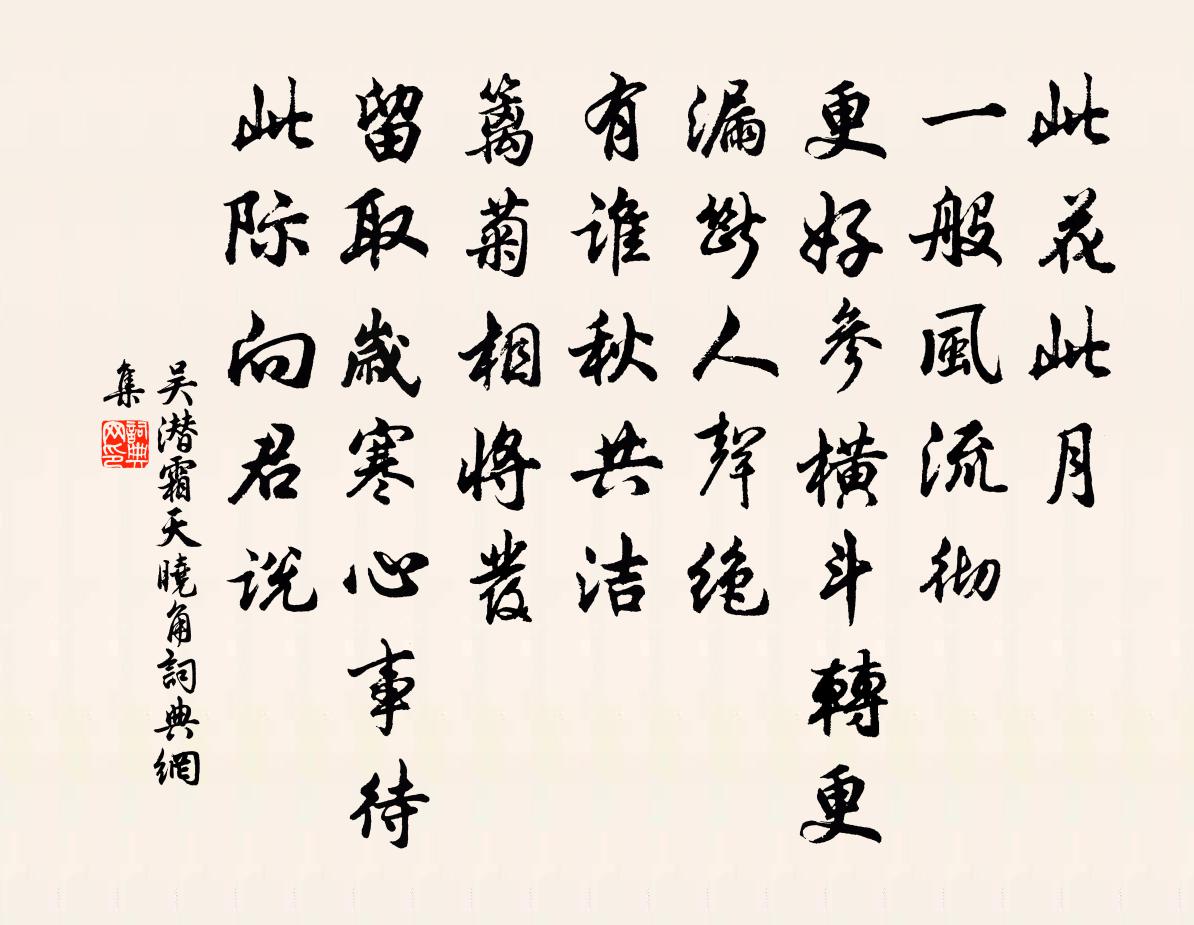 此花此月
一般風流彻
更好參横斗轉更
漏斷人聲绝
有谁秋共洁
篱菊相將發
留取歲寒心事待
此际向君说
吴潜霜天曉角詞典網
集
詞典
网印